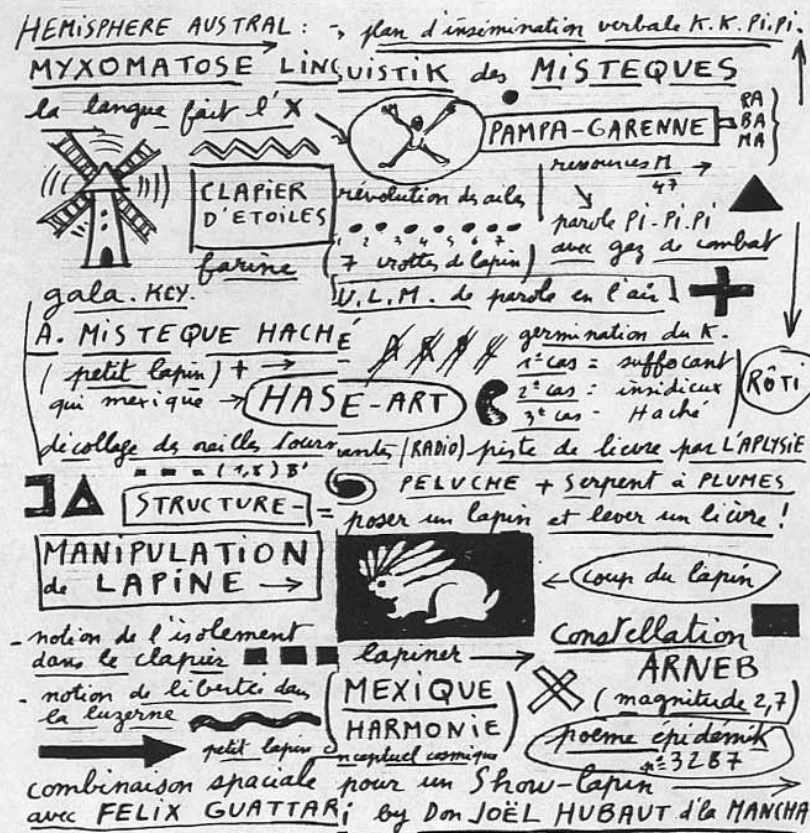 HEMISPHERE AUSTRAL : → plan d'insémination verbale K.K. Pi.Pi.
MYXOMATOSE LINGUISTIK des MISTEQUES
la langue fait l'X
PAMPA-GARENNE
RA
BA
MA
CLAPIER
D'ETOILES
farine
révolution des ailes
1 2 3 4 5 6 7
(7 crottes de lapin)
ressources M/47 →
parole Pi-Pi-Pi
avec gaz de combat
gala. KEY.
U.L.M. de parole en l'air
A. MISTEQUE HACHÉ
(petit lapin) + →
qui mexique →
HASE-ART
germination du K.
1er cas = suffocant
2e cas : insidieux
3e cas - Haché
RÔTI
décollage des oreilles tournantes (RADIO) piste de lièvre par L'APLYSIE
(1,8) B'
PELUCHE + Serpent à PLUMES
STRUCTURE- = poser un lapin et lever un lièvre !
MANIPULATION
de LAPINE →
← coup du lapin
- notion de l'isolement
dans le clapier
lapiner →
Constellation
ARNEB
(magnitude 2,7)
- notion de liberté dans
la luzerne
MEXIQUE
HARMONIE
petit lapin conceptuel cosmique
poème épidémik
n° 3287
combinaison spaciale pour un Show-lapin →
avec FELIX GUATTARi by Don JOËL HUBAUT d'la MANCHA